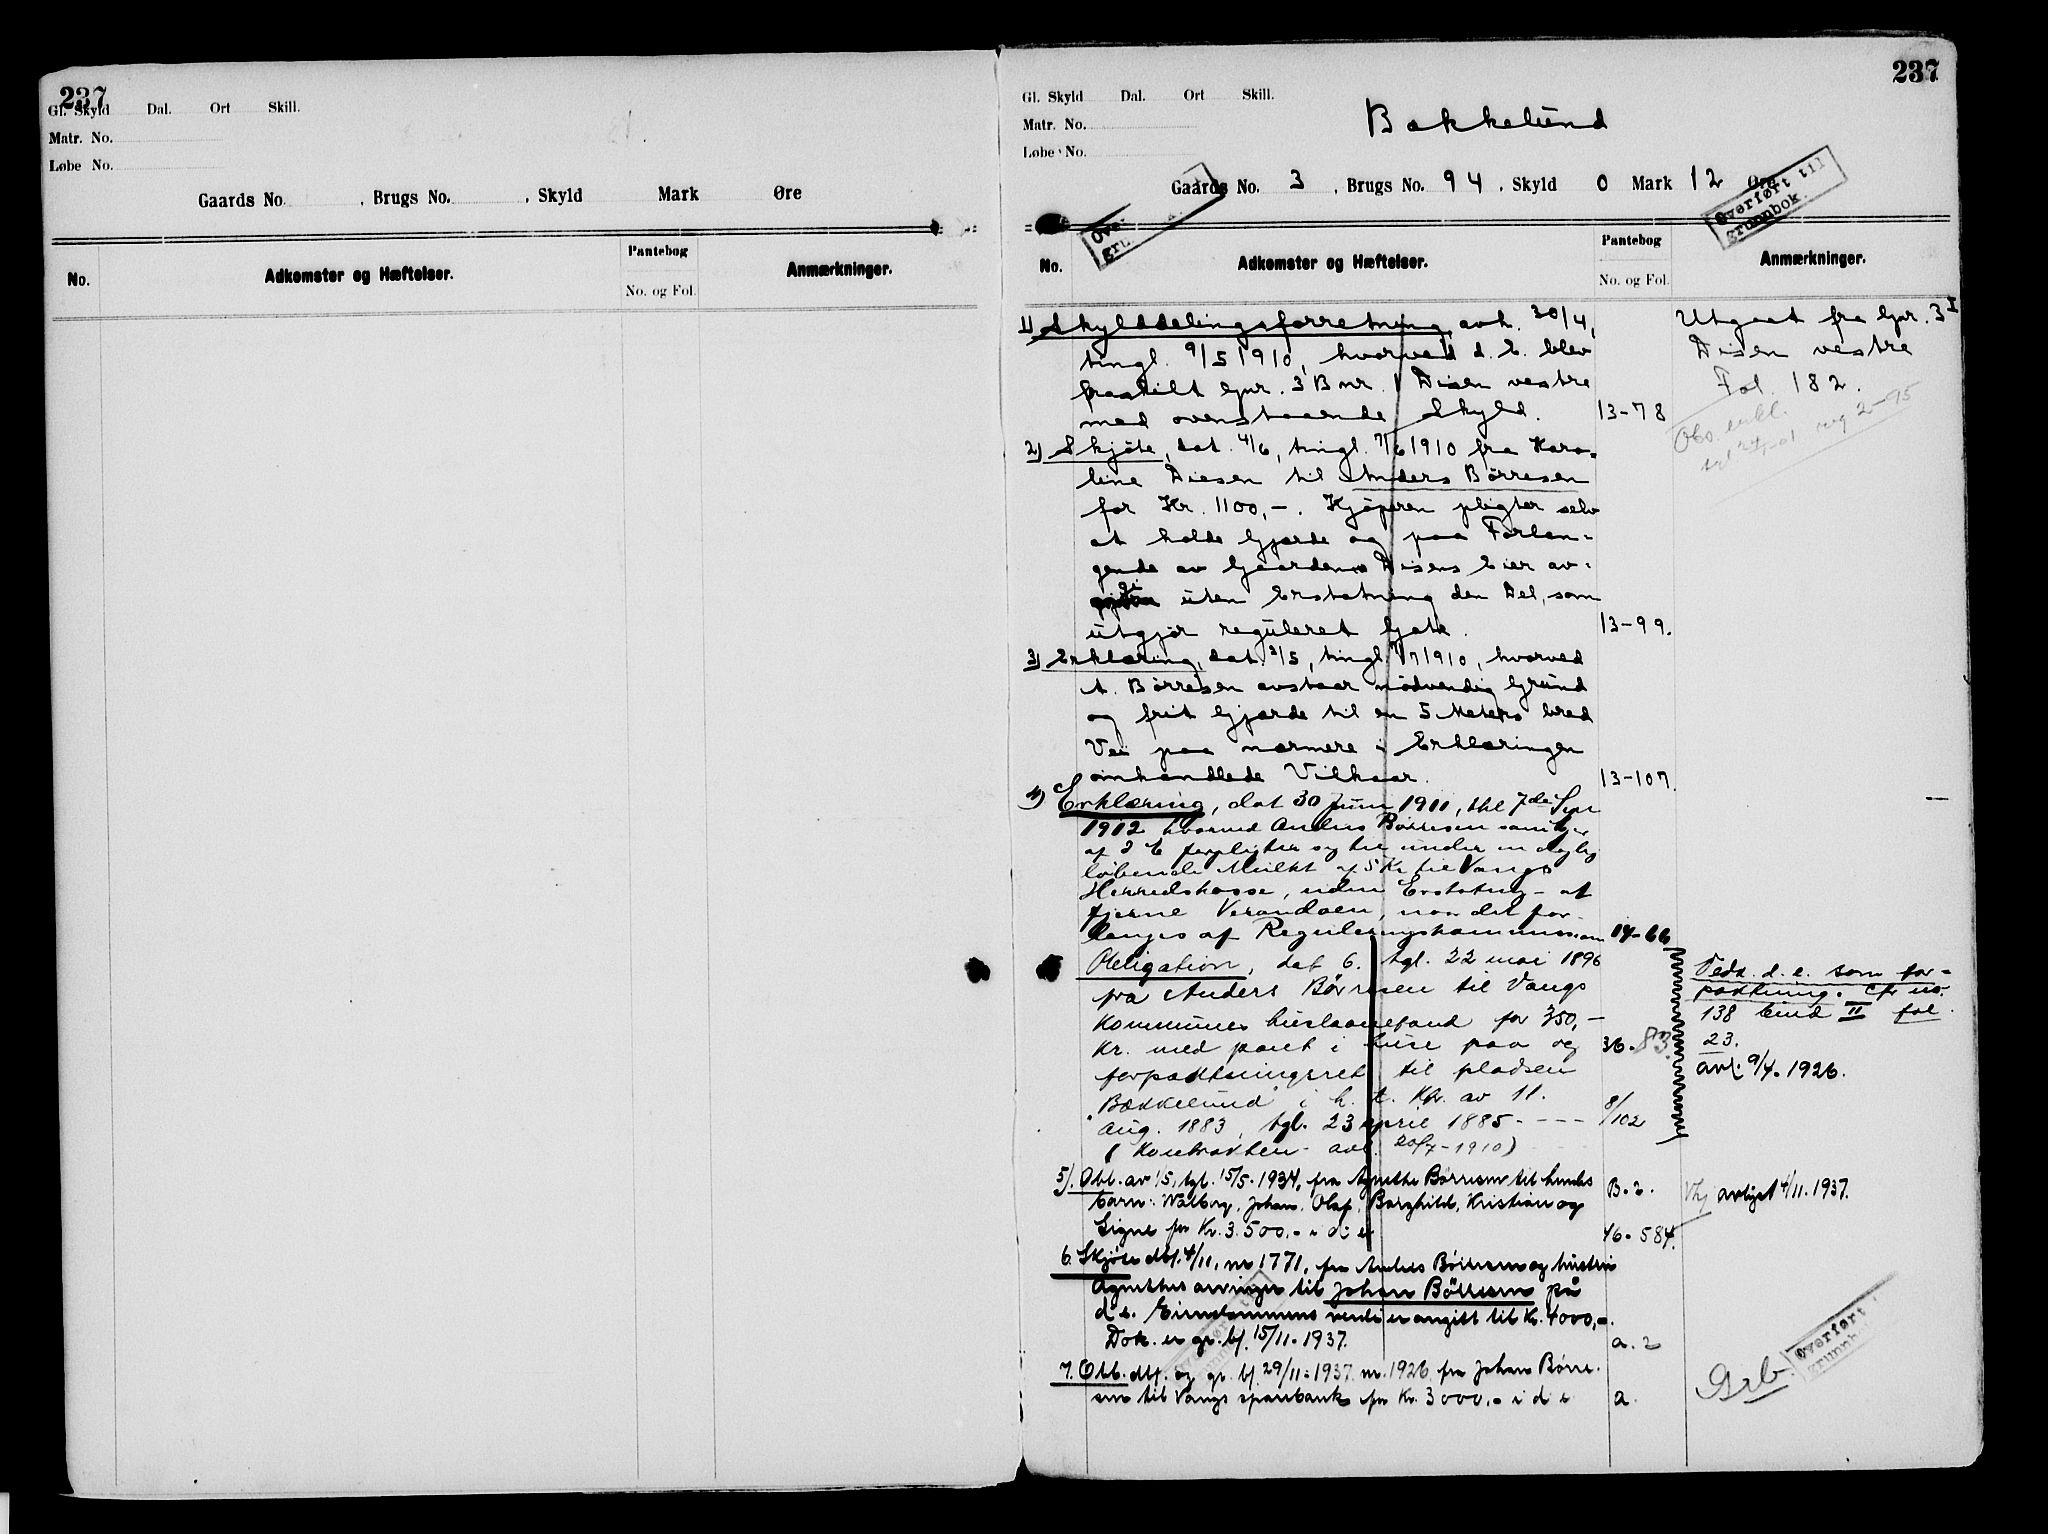 237
Gl. Skyld Dal. Ort Skill.
Matr. No.
Løbe No.
Gaards No. , Brugs No. , Skyld Mark Øre
No. Adkomster og Hæftelser. Pantebog No. og Fol. Anmærkninger.
237
Gl. Skyld Dal. Ort Skill.
Matr. No.
Løbe No.
Bakkelund
Gaards No. 3 , Brugs No. 94 , Skyld 0 Mark 12 Øre
Overført til
grunnbok.
No. Adkomster og Hæftelser. Pantebog No. og Fol. Anmærkninger.
1) Skylddelingsforretning avh. 30/4,
tingl. 9/5 1910, hvorved d. E. blev
fraskilt Gnr. 3 Bnr. 1 Disen vestre
med ovenstaaende Skyld. 13-78
Utgaat fra Gnr. 3 I
Disen vestre
Fol. 182.
2) Skjøte, dat. 4/6, tingl. 7/6 1910 fra Karo-
line Diesen til Anders Börresen
for Kr. 1100,-. Kjøperen pligter selv
at holde Gjærde og paa Forlan-
gende av Gaarden Disens Eier av-
gi uten Erstatning den Del, som
utgjør reguleret Gate. 13-99.
3) Erklæring, dat. 3/5, tingl. 7/7 1910, hvorved
A. Börresen avstaar nødvendig Grund
og frit Gjærde til en 5 Meters bred
Vei paa nærmere i Erklæringen
omhandlede Vilkaar. 13-107.
4) Erklæring, dat 30 Juni 1911, thl 7de Sept
1912 hvorved Anders Börresen som Eier
af d E forpligter sig til under en daglig
løbende Mulkt af 5 Kr til Vangs
Herredskasse, uden Erstatng - at
fjerne Verandaen, naar det for-
langes af Reguleringskommissionen 14-66
Obligation, dat 6. tgl. 22 mai 1896
fra Anders Börresen til Vangs
kommunes huslaanefond for 350,-
kr. med pant i huse paa og 36-83
forpaktningsret til pladsen
Bækkelund i h. t. Kfr. av 11.
aug. 1883, tgl. 23 april 1885 - - - - 8/102
(Kontrakten avl. 20/7-1910)
Vedr. d. e. som for-
paktning. Cfr no.
138 bind II fol.
23.
avl. 9/4. 1926.
5). Obl. av 1/5, tgl. 15/5. 1934, fra Agnethe Börresen til hendes B. 2.
barn: Walborg, Johan, Olaf, Borghild, Kristian og
Signe for Kr. 3.500.- i d e 16. 584.
avlyst 4/11. 1937.
6. Skjøte dbf. 4/11, nr 1771, fra Anders Börresen og hustru
Agnethes arvinger til Johan Börresen på
d e. Eiendommens verdi er angitt til Kr. 4000,-.
Dok. er gr. bf. 15/11-1937. a. 2
7. Obl. dbf. og gr. bf. 29/11-1937 nr. 1926 fra Johan Børre-
sen til Vangs sparebank for Kr. 3000.- i d e a.
Overført
grunnb